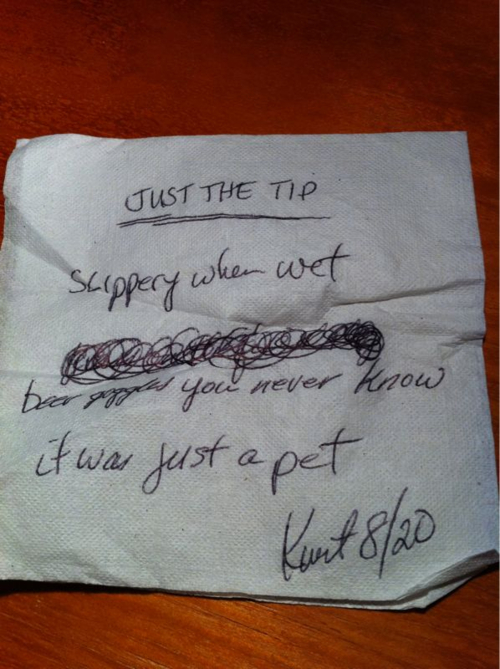 JUST THE TIP
Slippery when wet
beer goggles you never know
it was just a pet
Kurt 8/20